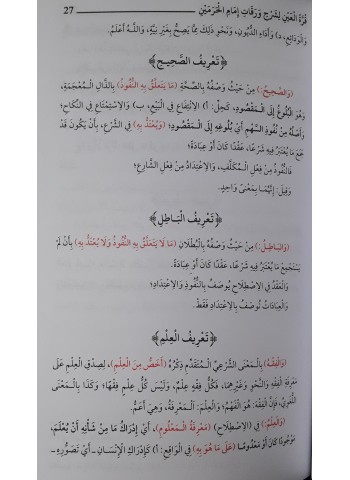 قُرَّةُ العَيْنِ لِشَرْحِ وَرَقَاتِ إِمَامِ الحَرَمَيْنِ 27
وَالْوَدَائِعِ، د) وَأَدَاءِ الدُّيُونِ، وَنَحْوِ ذَلِكَ مِمَّا يَصِحُّ بِغَيْرِ نِيَّةٍ، وَاللَّهُ أَعْلَمُ.
﴿تَعْرِيفُ الصَّحِيحِ﴾
(وَالصَّحِيحُ:) مِنْ حَيْثُ وَصْفُهُ بِالصِّحَّةِ (مَا يَتَعَلَّقُ بِهِ النُّفُوذُ) بِالذَّالِ الْمُعْجَمَةِ،
وَهُوَ الْبُلُوغُ إِلَى الْمَقْصُودِ، كَحِلِّ: أ) الِانْتِفَاعِ فِي الْبَيْعِ، ب) وَالِاسْتِمْتَاعِ فِي النِّكَاحِ؛
وَأَصْلُهُ مِنْ نُفُوذِ السَّهْمِ أَيْ بُلُوغِهِ إِلَى الْمَقْصُودِ؛ (وَيُعْتَدُّ بِهِ) فِي الشَّرْعِ، بِأَنْ يَكُونَ قَدْ
جَمَعَ مَا يُعْتَبَرُ فِيهِ شَرْعًا، عَقْدًا كَانَ أَوْ عِبَادَةً؛
فَالنُّفُوذُ مِنْ فِعْلِ الْمُكَلَّفِ، وَالِاعْتِدَادُ مِنْ فِعْلِ الشَّارِعِ؛
وَقِيلَ: إِنَّهُمَا بِمَعْنًى وَاحِدٍ.
﴿تَعْرِيفُ الْبَاطِلِ﴾
(وَالْبَاطِلُ:) مِنْ حَيْثُ وَصْفُهُ بِالْبُطْلَانِ (مَا لَا يَتَعَلَّقُ بِهِ النُّفُوذُ وَلَا يُعْتَدُّ بِهِ) بِأَنْ لَمْ
يَسْتَجْمِعْ مَا يُعْتَبَرُ فِيهِ شَرْعًا، عَقْدًا كَانَ أَوْ عِبَادَةً؛
وَالْعَقْدُ فِي الِاصْطِلَاحِ يُوصَفُ بِالنُّفُوذِ وَالِاعْتِدَادِ؛
وَالْعِبَادَاتُ تُوصَفُ بِالِاعْتِدَادِ فَقَطْ.
﴿تَعْرِيفُ الْعِلْمِ﴾
(وَالْفِقْهُ) بِالْمَعْنَى الشَّرْعِيِّ الْمُتَقَدِّمِ ذِكْرُهُ (أَخَصُّ مِنَ الْعِلْمِ)، لِصِدْقِ الْعِلْمِ عَلَى
مَعْرِفَةِ الْفِقْهِ وَالنَّحْوِ وَغَيْرِهِمَا، فَكُلُّ فِقْهٍ عِلْمٌ، وَلَيْسَ كُلُّ عِلْمٍ فِقْهًا؛ وَكَذَا بِالْمَعْنَى
اللُّغَوِيِّ، فَإِنَّ الْفِقْهَ: هُوَ الْفَهْمُ؛ وَالْعِلْمَ: الْمَعْرِفَةُ، وَهِيَ أَعَمُّ.
(وَالْعِلْمُ:) فِي (الِاصْطِلَاحِ) (مَعْرِفَةُ الْمَعْلُومِ)، أَيْ إِدْرَاكُ مَا مِنْ شَأْنِهِ أَنْ يُعْلَمَ،
مَوْجُودًا كَانَ أَوْ مَعْدُومًا (عَلَى مَا هُوَ بِهِ) فِي الْوَاقِعِ: أ) كَإِدْرَاكِ الْإِنْسَانِ ـ أَيْ تَصَوُّرِهِ ـ